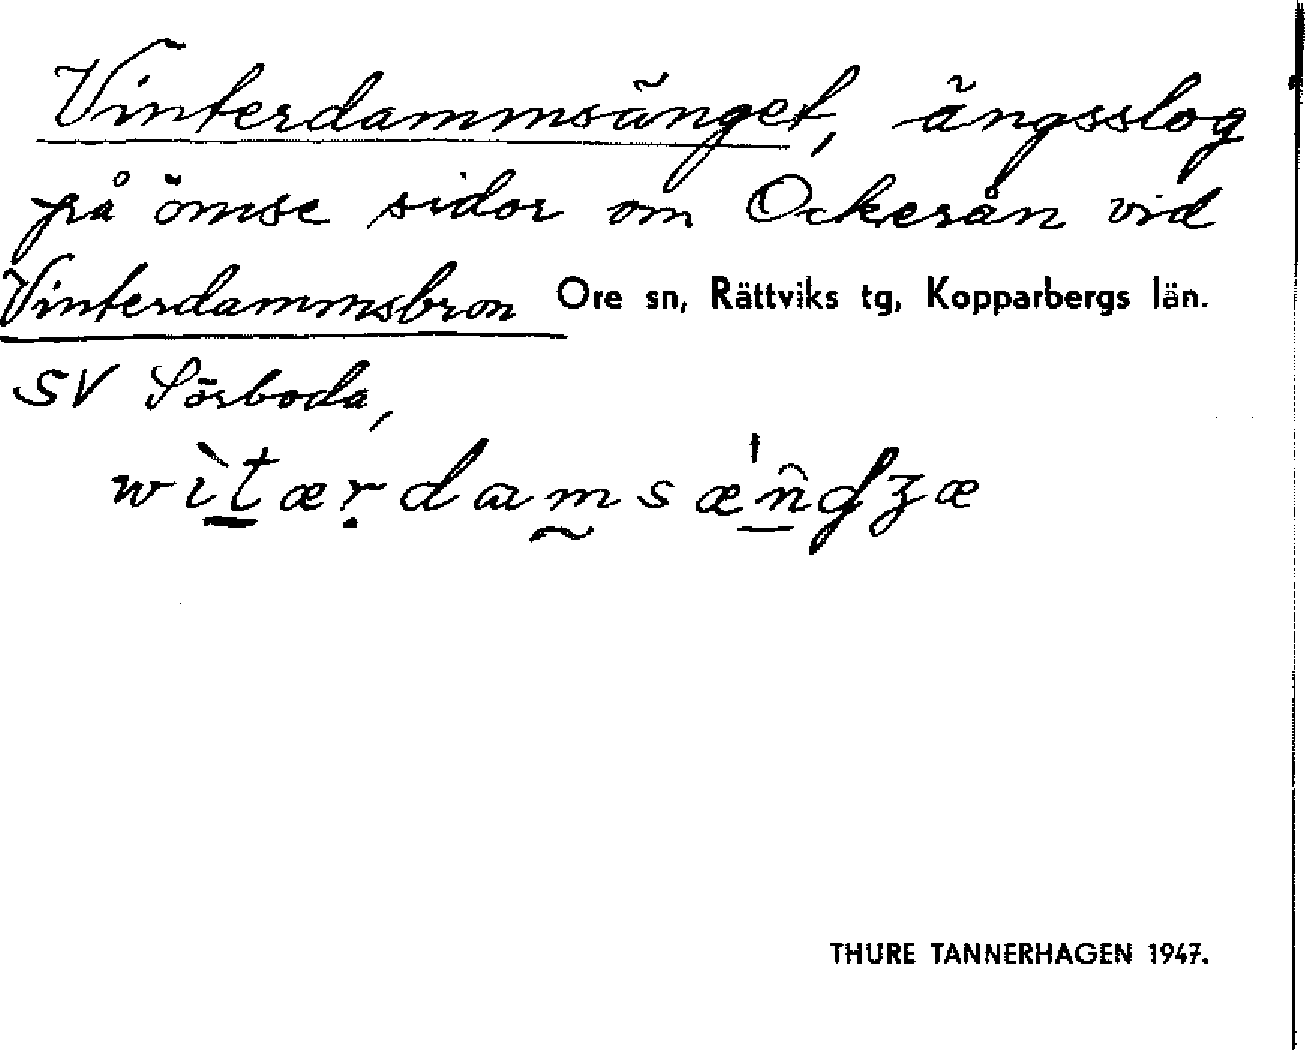 Vinterdammsänget, ängsslog
på ömse sidor om Ockerån vid
Vinterdammsbron Ore sn, Rättviks tg, Kopparbergs län.
SV Sörboda,
wìtærdamsæ'n̂dʒæ
THURE TANNERHAGEN 1947.